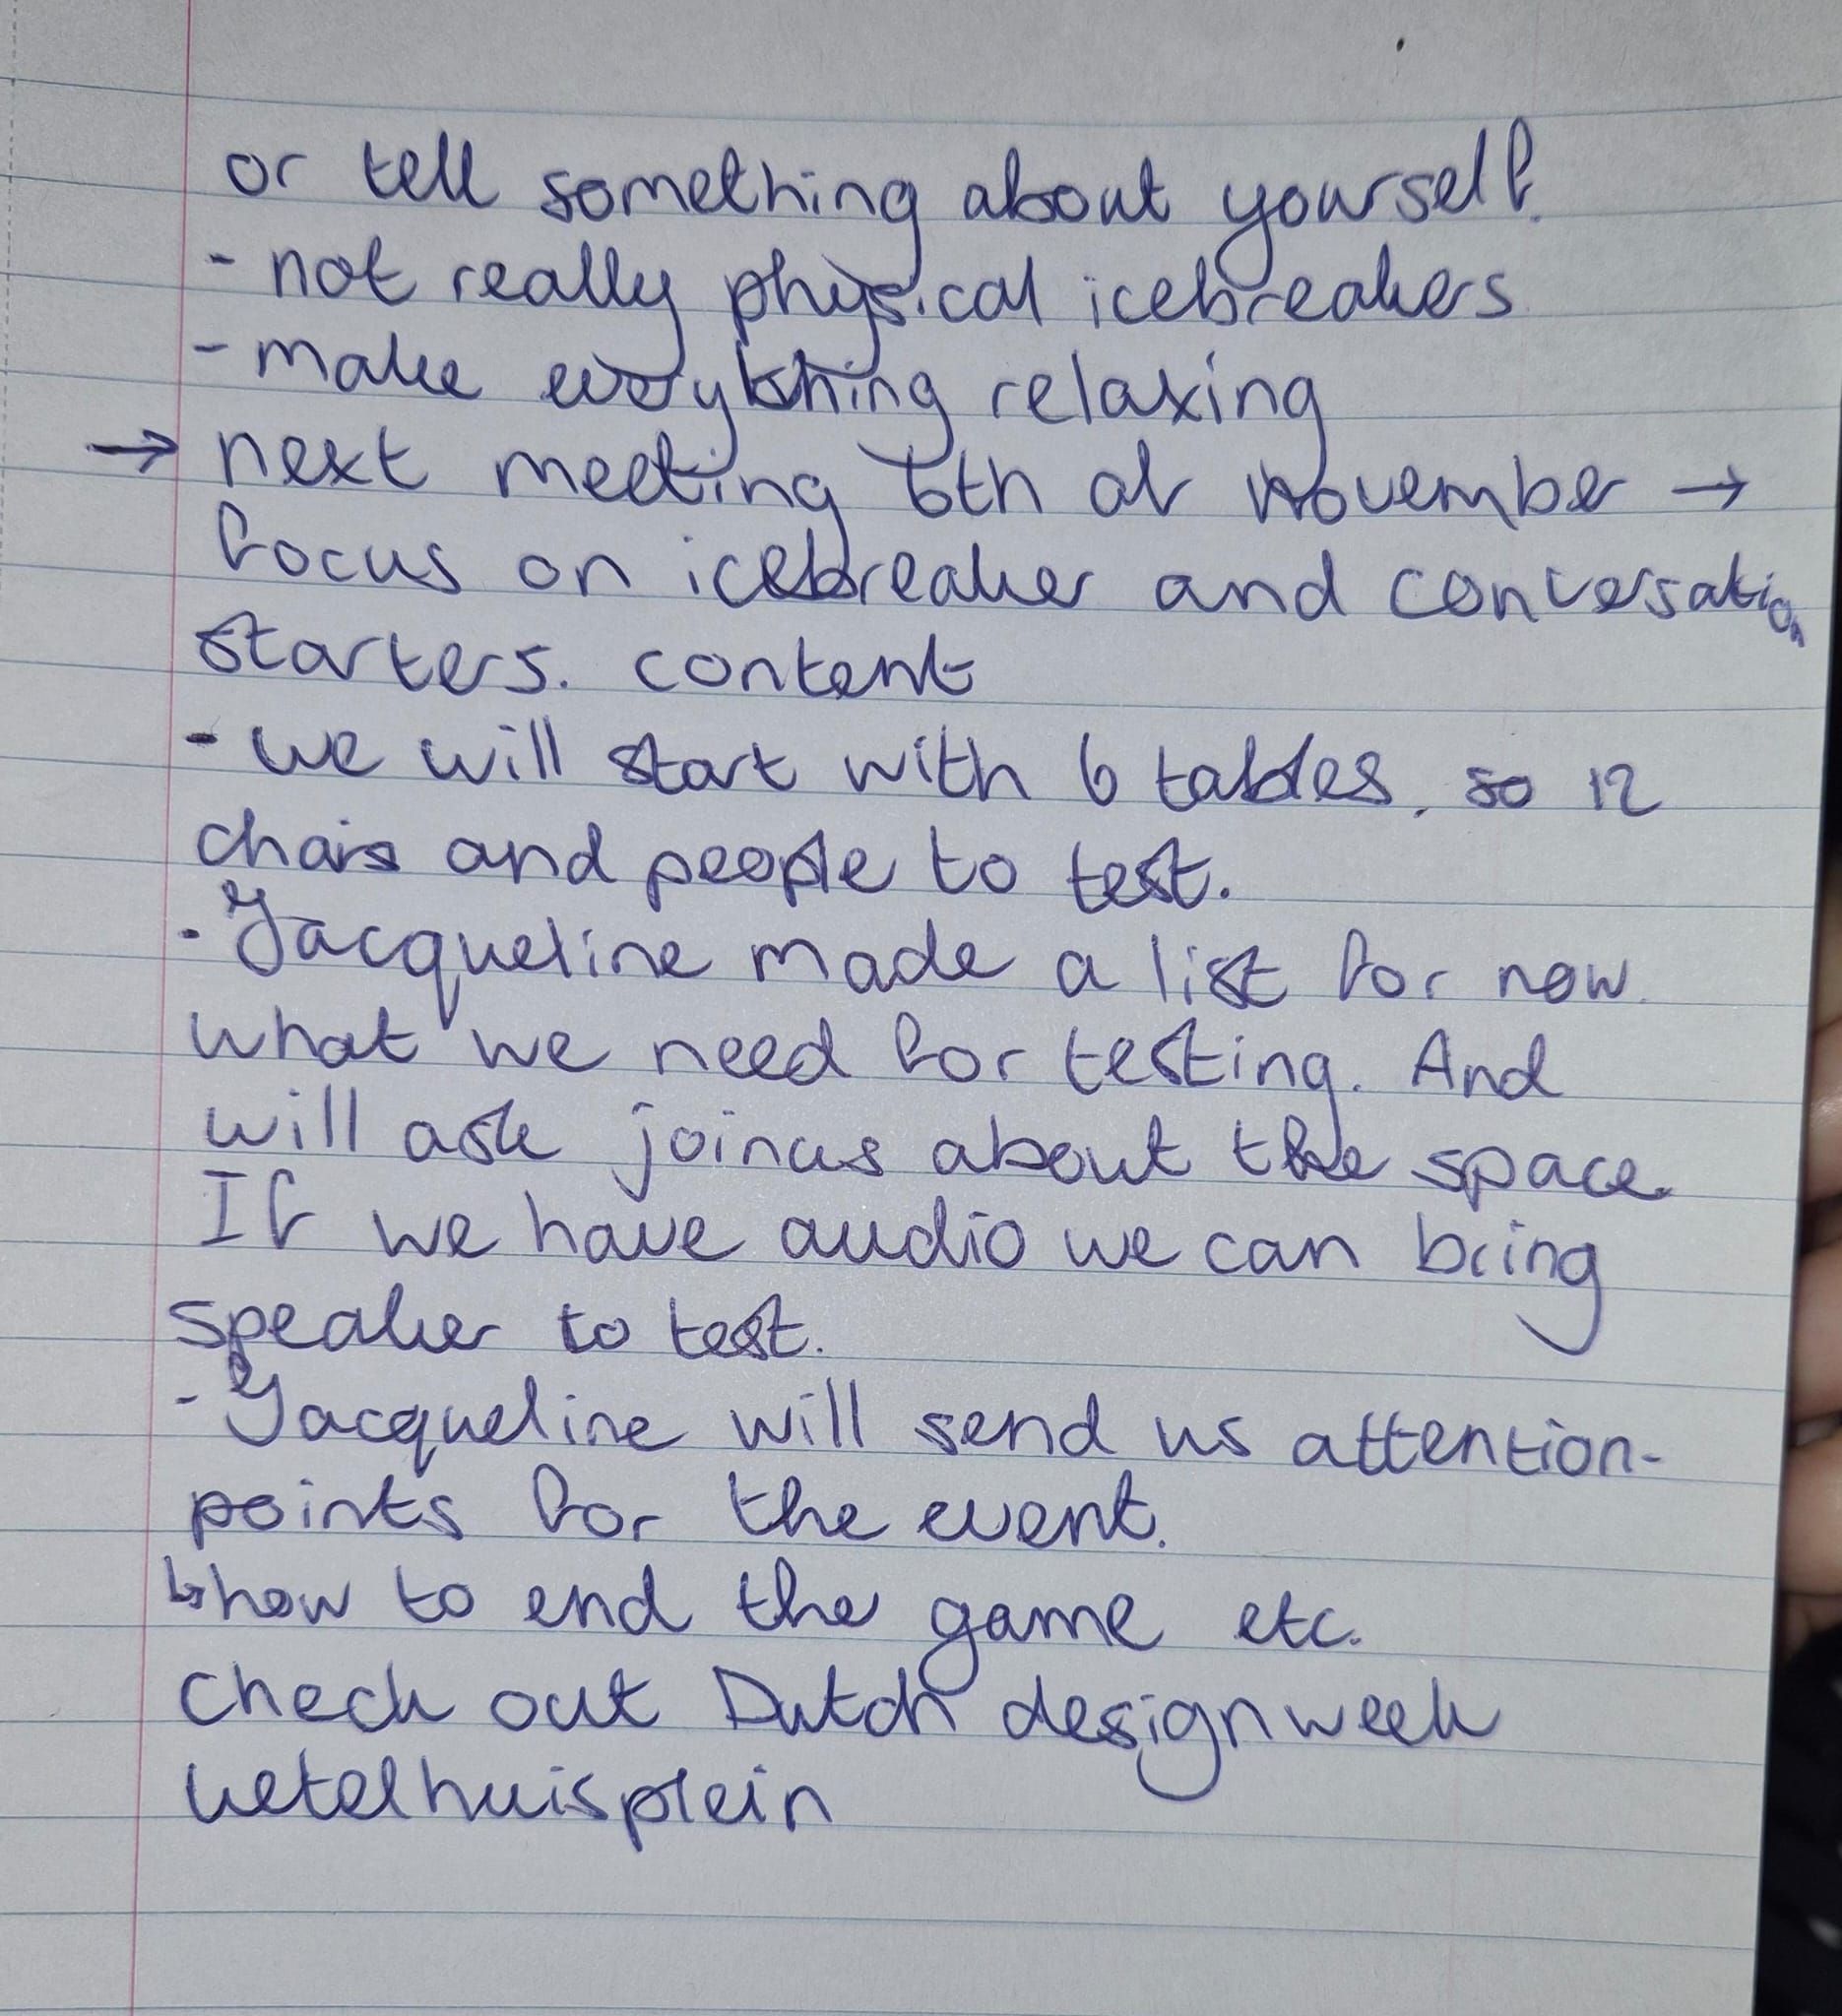 or tell something about yourself.
- not really physical icebreakers
- make everything relaxing
→ next meeting 6th of november →
focus on icebreaker and conversation
starters. content
- we will start with 6 tables, so 12
chairs and people to test.
- Jacqueline made a list for now
what we need for testing. And
will ask joinus about the space.
If we have audio we can bring
speaker to test.
- Jacqueline will send us attention-
points for the event.
↳ how to end the game etc.
Check out Dutch designweek
ketelhuisplein